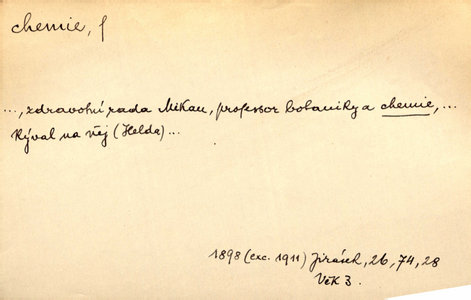 chemie, f
..., zdravotní rada Mikan, professor botaniky a chemie, ...
kýval na něj (Helda) ...
1898 (exc. 1911) Jirásek, 26, 74, 28
Věk 3.